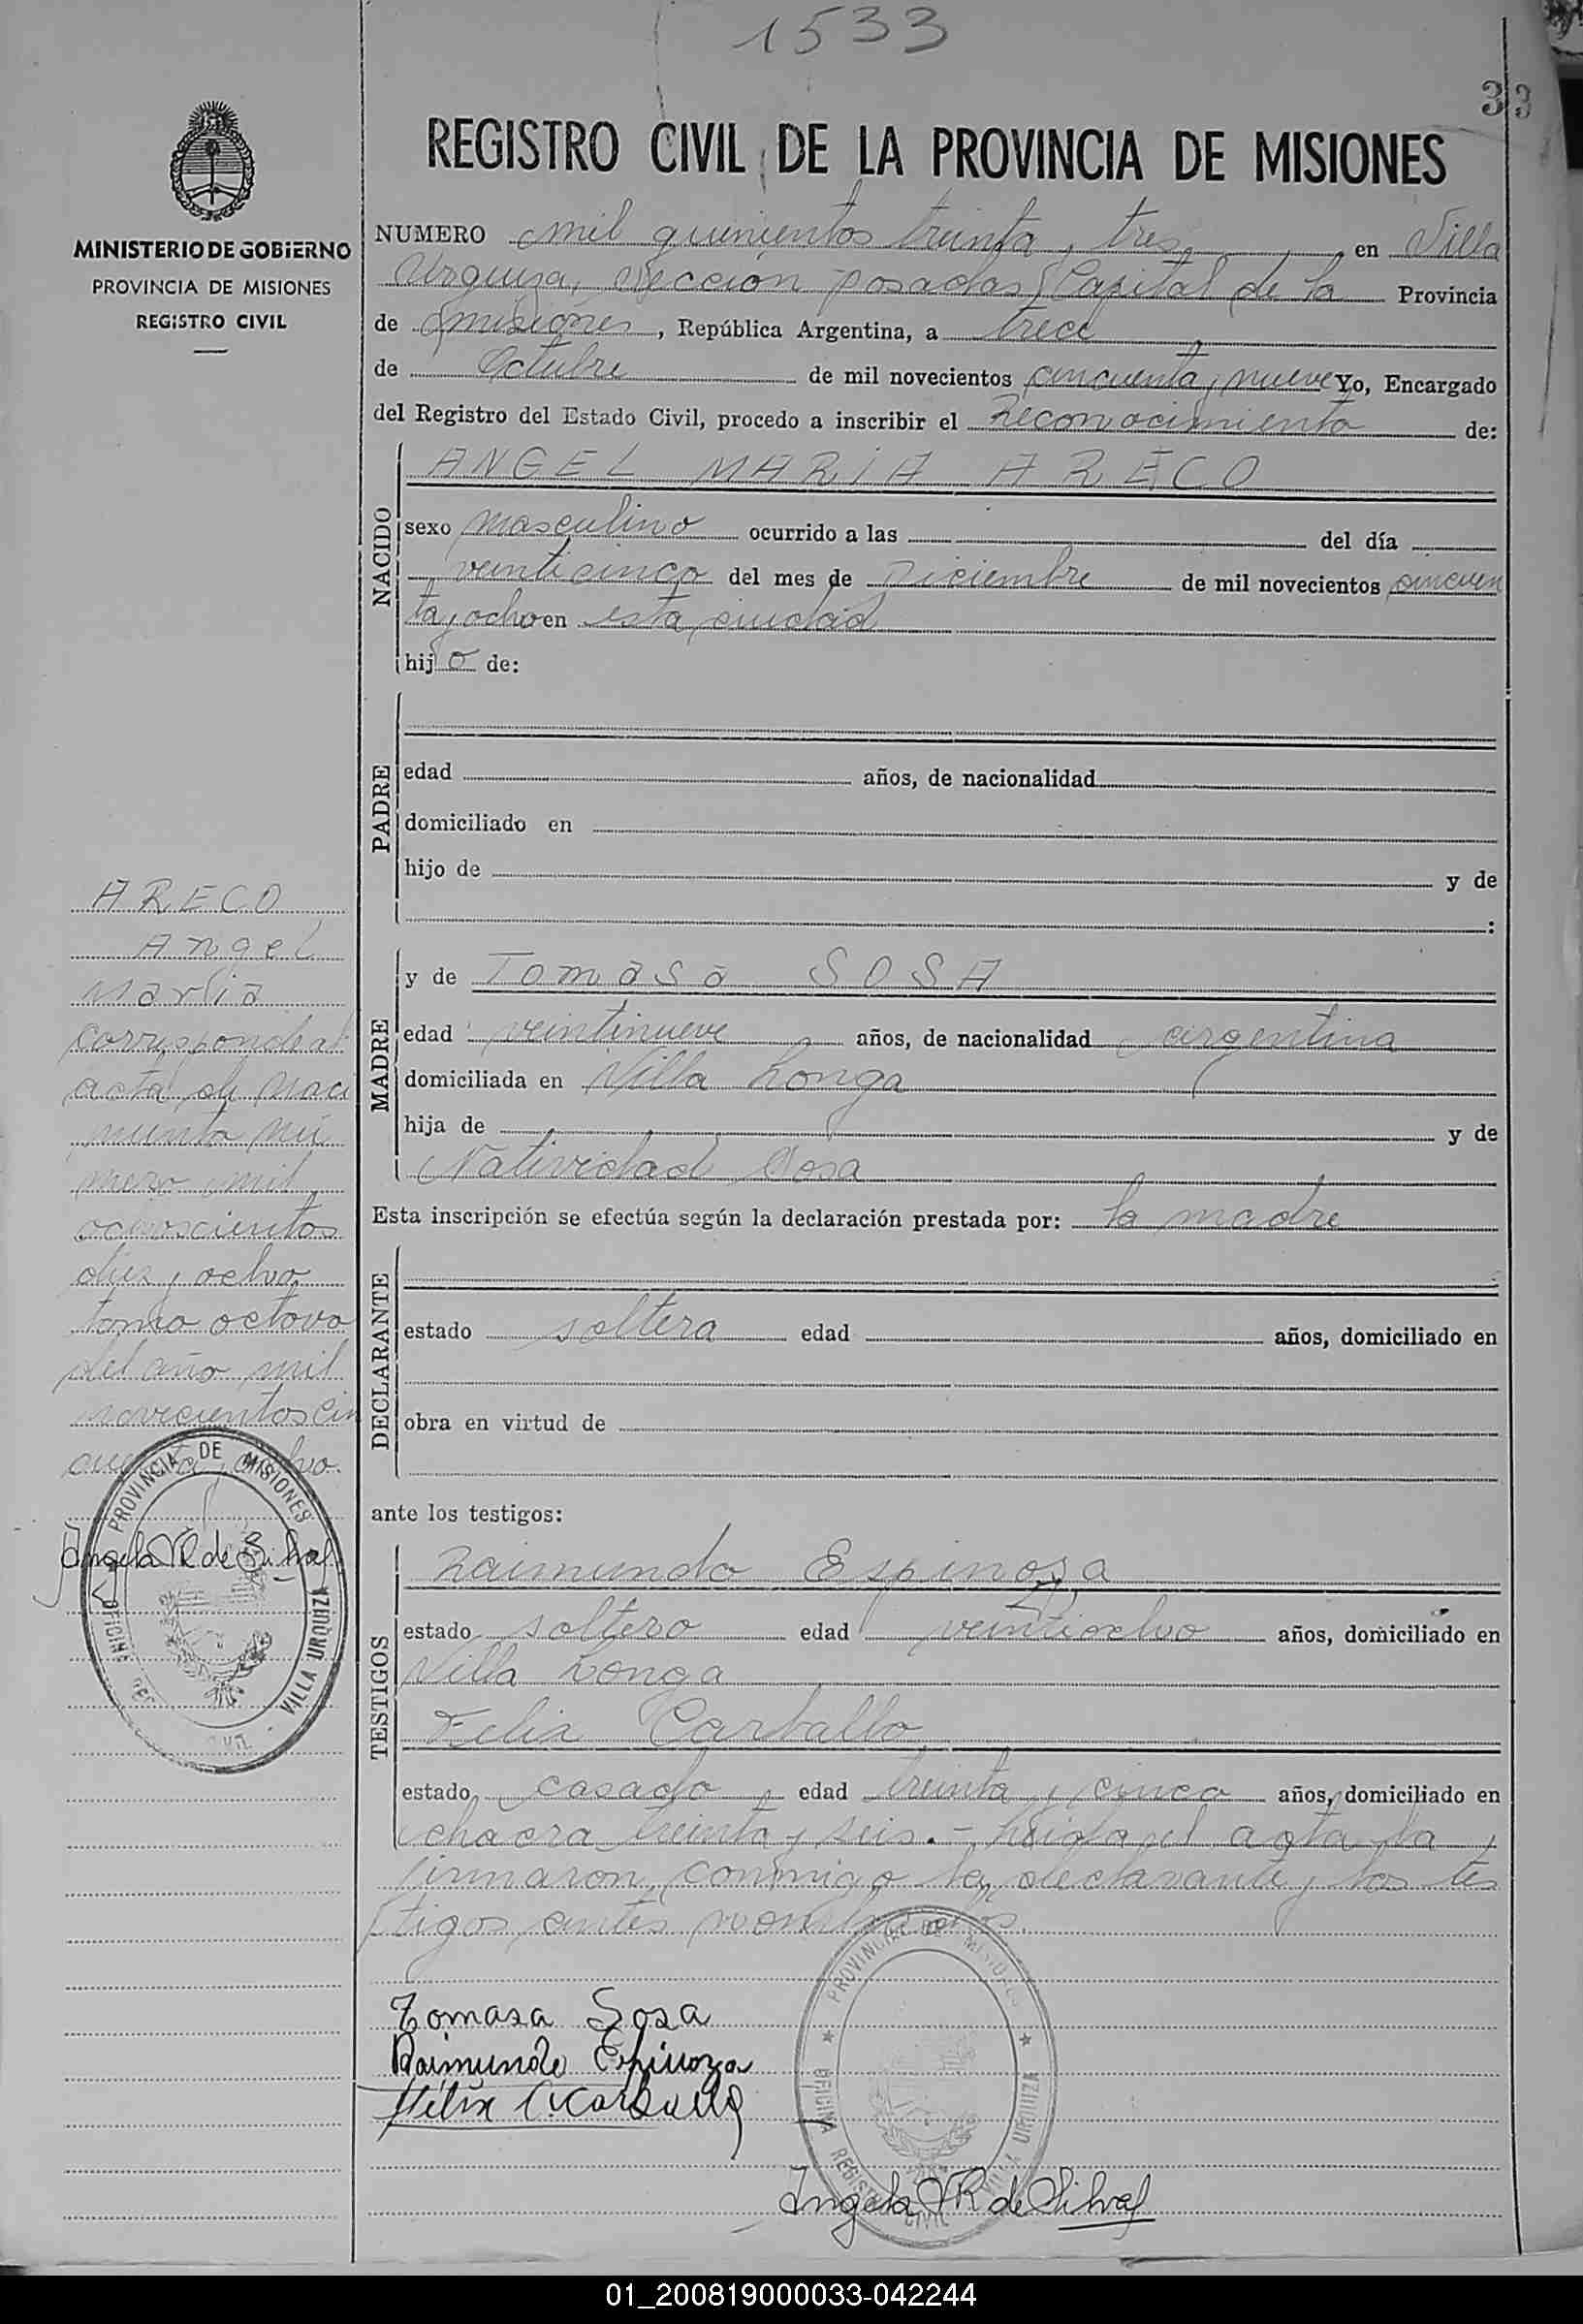 1533
33
REGISTRO CIVIL DE LA PROVINCIA DE MISIONES
MINISTERIO DE GOBIERNO
PROVINCIA DE MISIONES
REGISTRO CIVIL
NUMERO mil quinientos treinta y tres en Villa
Urquiza, Sección Posadas, Capital de la Provincia
de Misiones, República Argentina, a trece
de Octubre de mil novecientos cincuenta y nueve Yo, Encargado
del Registro del Estado Civil, procedo a inscribir el Reconocimiento de:
NACIDO
ANGEL MARIA ARECO
sexo masculino ocurrido a las del día
veinticinco del mes de Diciembre de mil novecientos cincuen
ta y ocho en esta ciudad
hijo de:
PADRE
edad años, de nacionalidad
domiciliado en
hijo de y de
:
MADRE
y de Tomasa SOSA
edad veintinueve años, de nacionalidad argentina
domiciliada en Villa Longa
hija de y de
Natividad Sosa
Esta inscripción se efectúa según la declaración prestada por: la madre
DECLARANTE
estado soltera edad años, domiciliado en
obra en virtud de
ante los testigos:
TESTIGOS
Raimundo Espinoza
estado soltero edad veintiocho años, domiciliado en
Villa Longa
Felix Carballo
estado casado edad treinta y cinco años, domiciliado en
chacra treinta y seis.- leida el acta la
firmaron conmigo la declarante y los tes
tigos antes nombrados.
Tomasa Sosa
Raimundo Espinoza
Félix C. Carballo
PROVINCIA DE MISIONES
OFICINA REGISTRO CIVIL
VILLA URQUIZA
Angela VR de Silva
ARECO
Angel
Maria
corresponde al
acta de naci
miento nú
mero mil
ochoscientos
diez y ocho
tomo octavo
del año mil
novecientos cin
cuenta y ocho.
PROVINCIA DE MISIONES
OFICINA
VILLA URQUIZA
Angela VR de Silva
01_200819000033-042244